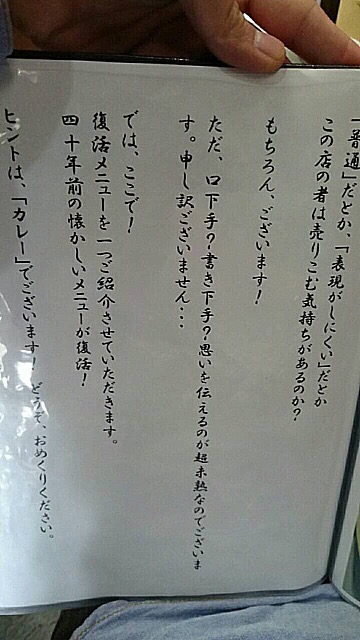 「普通」だとか、「表現がしにくい」だとか
この店の者は売りこむ気持ちがあるのか？
もちろん、ございます！
ただ、口下手？書き下手？思いを伝えるのが超未熟なのでございま
す。申し訳ございません・・・
では、ここで！
復活メニューを一つご紹介させていただきます。
四十年前の懐かしいメニューが復活！
ヒントは、「カレー」でございます！どうぞ、おめくりください。